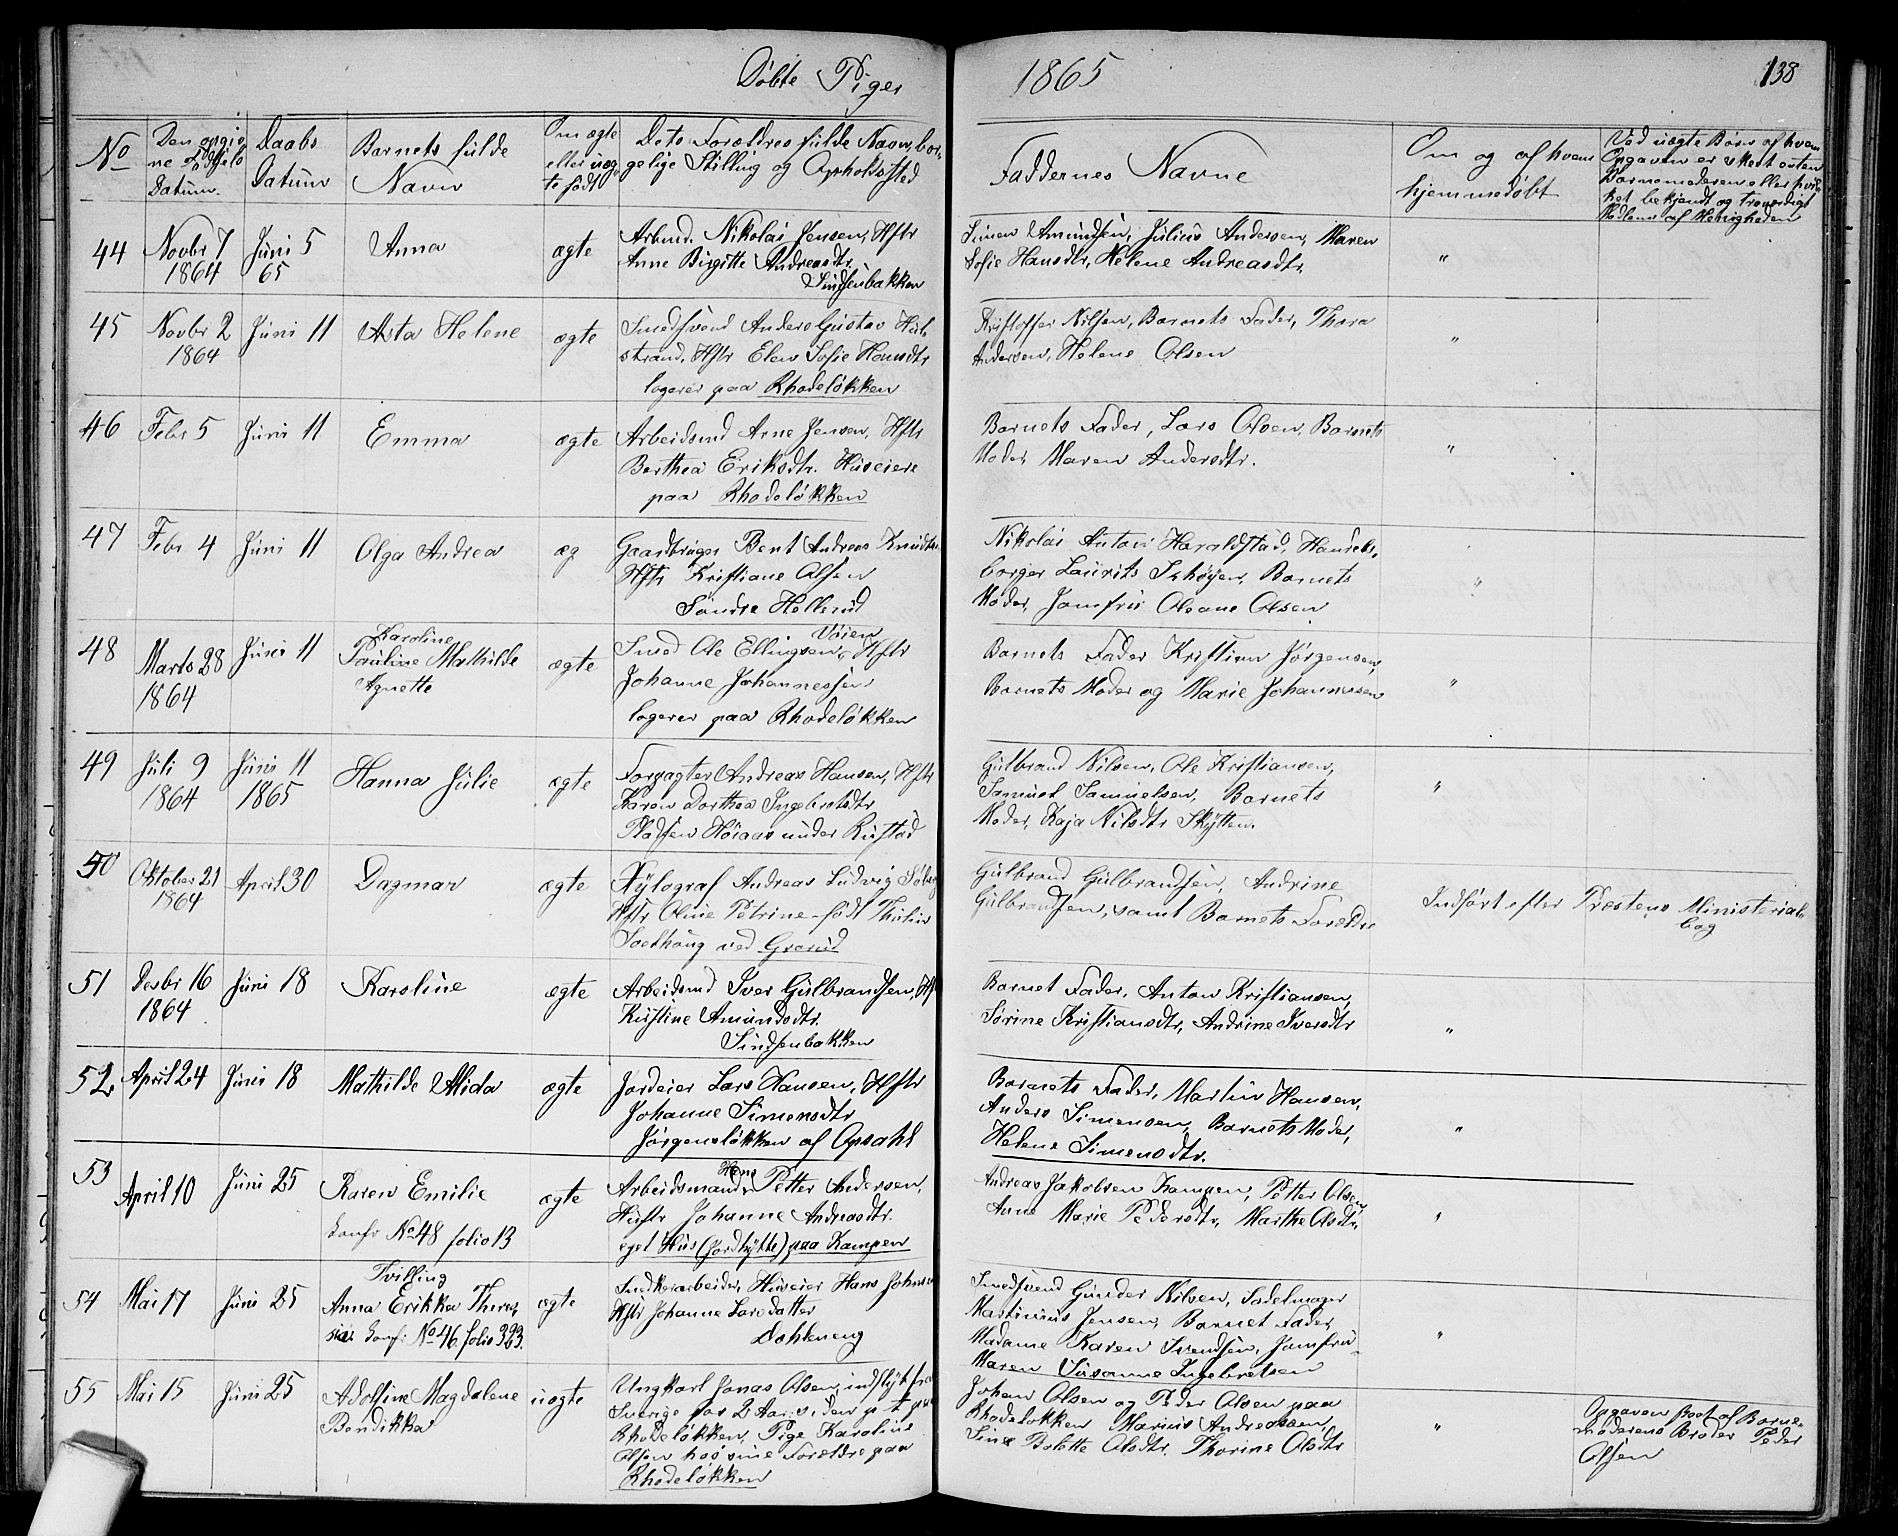 Døbte Piger
1865
138
No
Den opgiv
ne Fødsels
Datum.
Daabs
Datum
Barnets fulde
Navn
Om ægte
eller uæg
te født
Dets Forældres fulde Navn, bor-
gelige Stilling og Opholdssted
Faddernes Navne
Om og af hvem
hjemmedøbt
Ved uægte Børn af hvem
Opgaven er skeet enten
Barnemoderen eller hvil
ket bekjendt og troværdigt
Medlem af Menigheden
44
Novbr 7
1864
Juni 5
65
Anna
ægte
Arbmd. Nikolai Jensen, Hstr
Anne Birgitte Andreasdtr.
Sindsenbakken
Simen Amundsen, Julius Andersen, Maren
Sofie Hansdtr, Helene Andreasdtr.
"
45
Novbr 2
1864
Juni 11
Asta Helene
ægte
Smedsvend Anders Gustav Hul
strand, Hstr Elen Sofie Hansdtr
logerer paa Rhodeløkken
Kristoffer Nilsen, Barnets Fader, Thora
Andersen, Helene Olsen
"
46
Febr 5
Juni 11
Emma
ægte
Arbeidsmd Arne Jensen, Hstr
Berthea Eriksdtr. Huseiere
paa Rhodeløkken
Barnets Fader, Lars Olsen, Barnets
Moder, Maren Andersdtr.
"
47
Febr 4
Juni 11
Olga Andrea
æg
Gaardbruger Bent Andreas Knudtsen
Hstr Kristiane Olsen
Søndre Hellerud
Nikolai Anton Haraldstad, Handels-
borger Laurits Schøyen, Barnets
Moder, Jomfru Oleane Olsen
"
48
Marts 28
1864
Juni 11
Karoline
Pauline Mathilde
Agnette
ægte
Vøien
Smed Ole Ellingsen, Hstr
Johanne Johannessen
logerer paa Rhodeløkken
Barnets Fader Kristian Jørgensen,
Barnets Moder og Marie Johannessen
"
49
Juli 9
1864
Juni 11
1865
Hanna Julie
ægte
Forpagter Andreas Hansen, Hstr
Karen Dorthea Ingebretsdtr
Pladsen Høiaas under Rustad
Gulbrand Nilsen, Ole Kristiansen,
Samuel Samuelsen, Barnets
Moder, Kaja Nilsdtr Skytten.
"
50
Oktober 21
1864
April 30
Dagmar
ægte
Xylograf Andreas Ludvig Søberg
Hstr Oline Petrine født Thulin
Solhaug ved Grorud
Gulbrand Gulbrandsen, Andrine
Gulbrandsen, samt Barnets Forældre
Indført efter Præstens Ministerial-
bog
51
Desbr 16
1864
Juni 18
Karoline
ægte
Arbeidsmd Iver Gulbrandsen, Hst
Kristine Amundsdtr.
Sindsenbakken
Barnet Fader, Anton Kristiansen,
Sørine Kristiansdtr, Andrine Iversdtr
"
52
April 24
Juni 18
Mathilde Alida
ægte
Jordeier Lars Hansen, Hstr
Johanne Simensdtr
Jørgensløkken af Opsahl
Barnets Fader, Martin Hansen,
Anders Simensen, Barnets Moder,
Helene Simensdtr.
"
53
April 10
Juni 25
Karen Emilie
Konfr No 48 folio 13
ægte
Hans
Arbeidsmand Petter Andersen,
Hustr Johanne Andreasdtr.
eget Hus (Jordhytte) paa Kampen
Andreas Jakobsen Kampen, Petter Olsen,
Anne Marie Pedersdtr, Marthe Olsdtr,
"
54
Mai 17
Juni 25
Tvilling
Anna Erikka There,
sia. Konf: No 46. folio 323.
ægte
Snedkerarbeider, Huseier Hans Johnsen
Hstr Johanne Larsdatter
Dahleneng
Smedsvend Gunder Nilsen, Sadelmager
Martinius Jensen, Barnet Fader,
Madame Karen Svendsen, Jomfru
Maren Susanne Ingebretsen
"
55
Mai 15
Juni 25
Adolfine Magdalene
Bendikka
uægte
Ungkarl Jonas Olsen, indflyt fra
Sverige for 2 Aar s. iden p. t. paa
Rhodeløkken, Pige Karoline
Olsen hos sine Forældre paa
Rhodeløkken
Johan Olsen og Peder Olsen paa
Rhodeløkken Marius Andreassen,
Sina Bolette Olsdtr, Thorine Olsdtr
"
Opgaven skeet af Barne-
moderens Broder Peder
Olsen